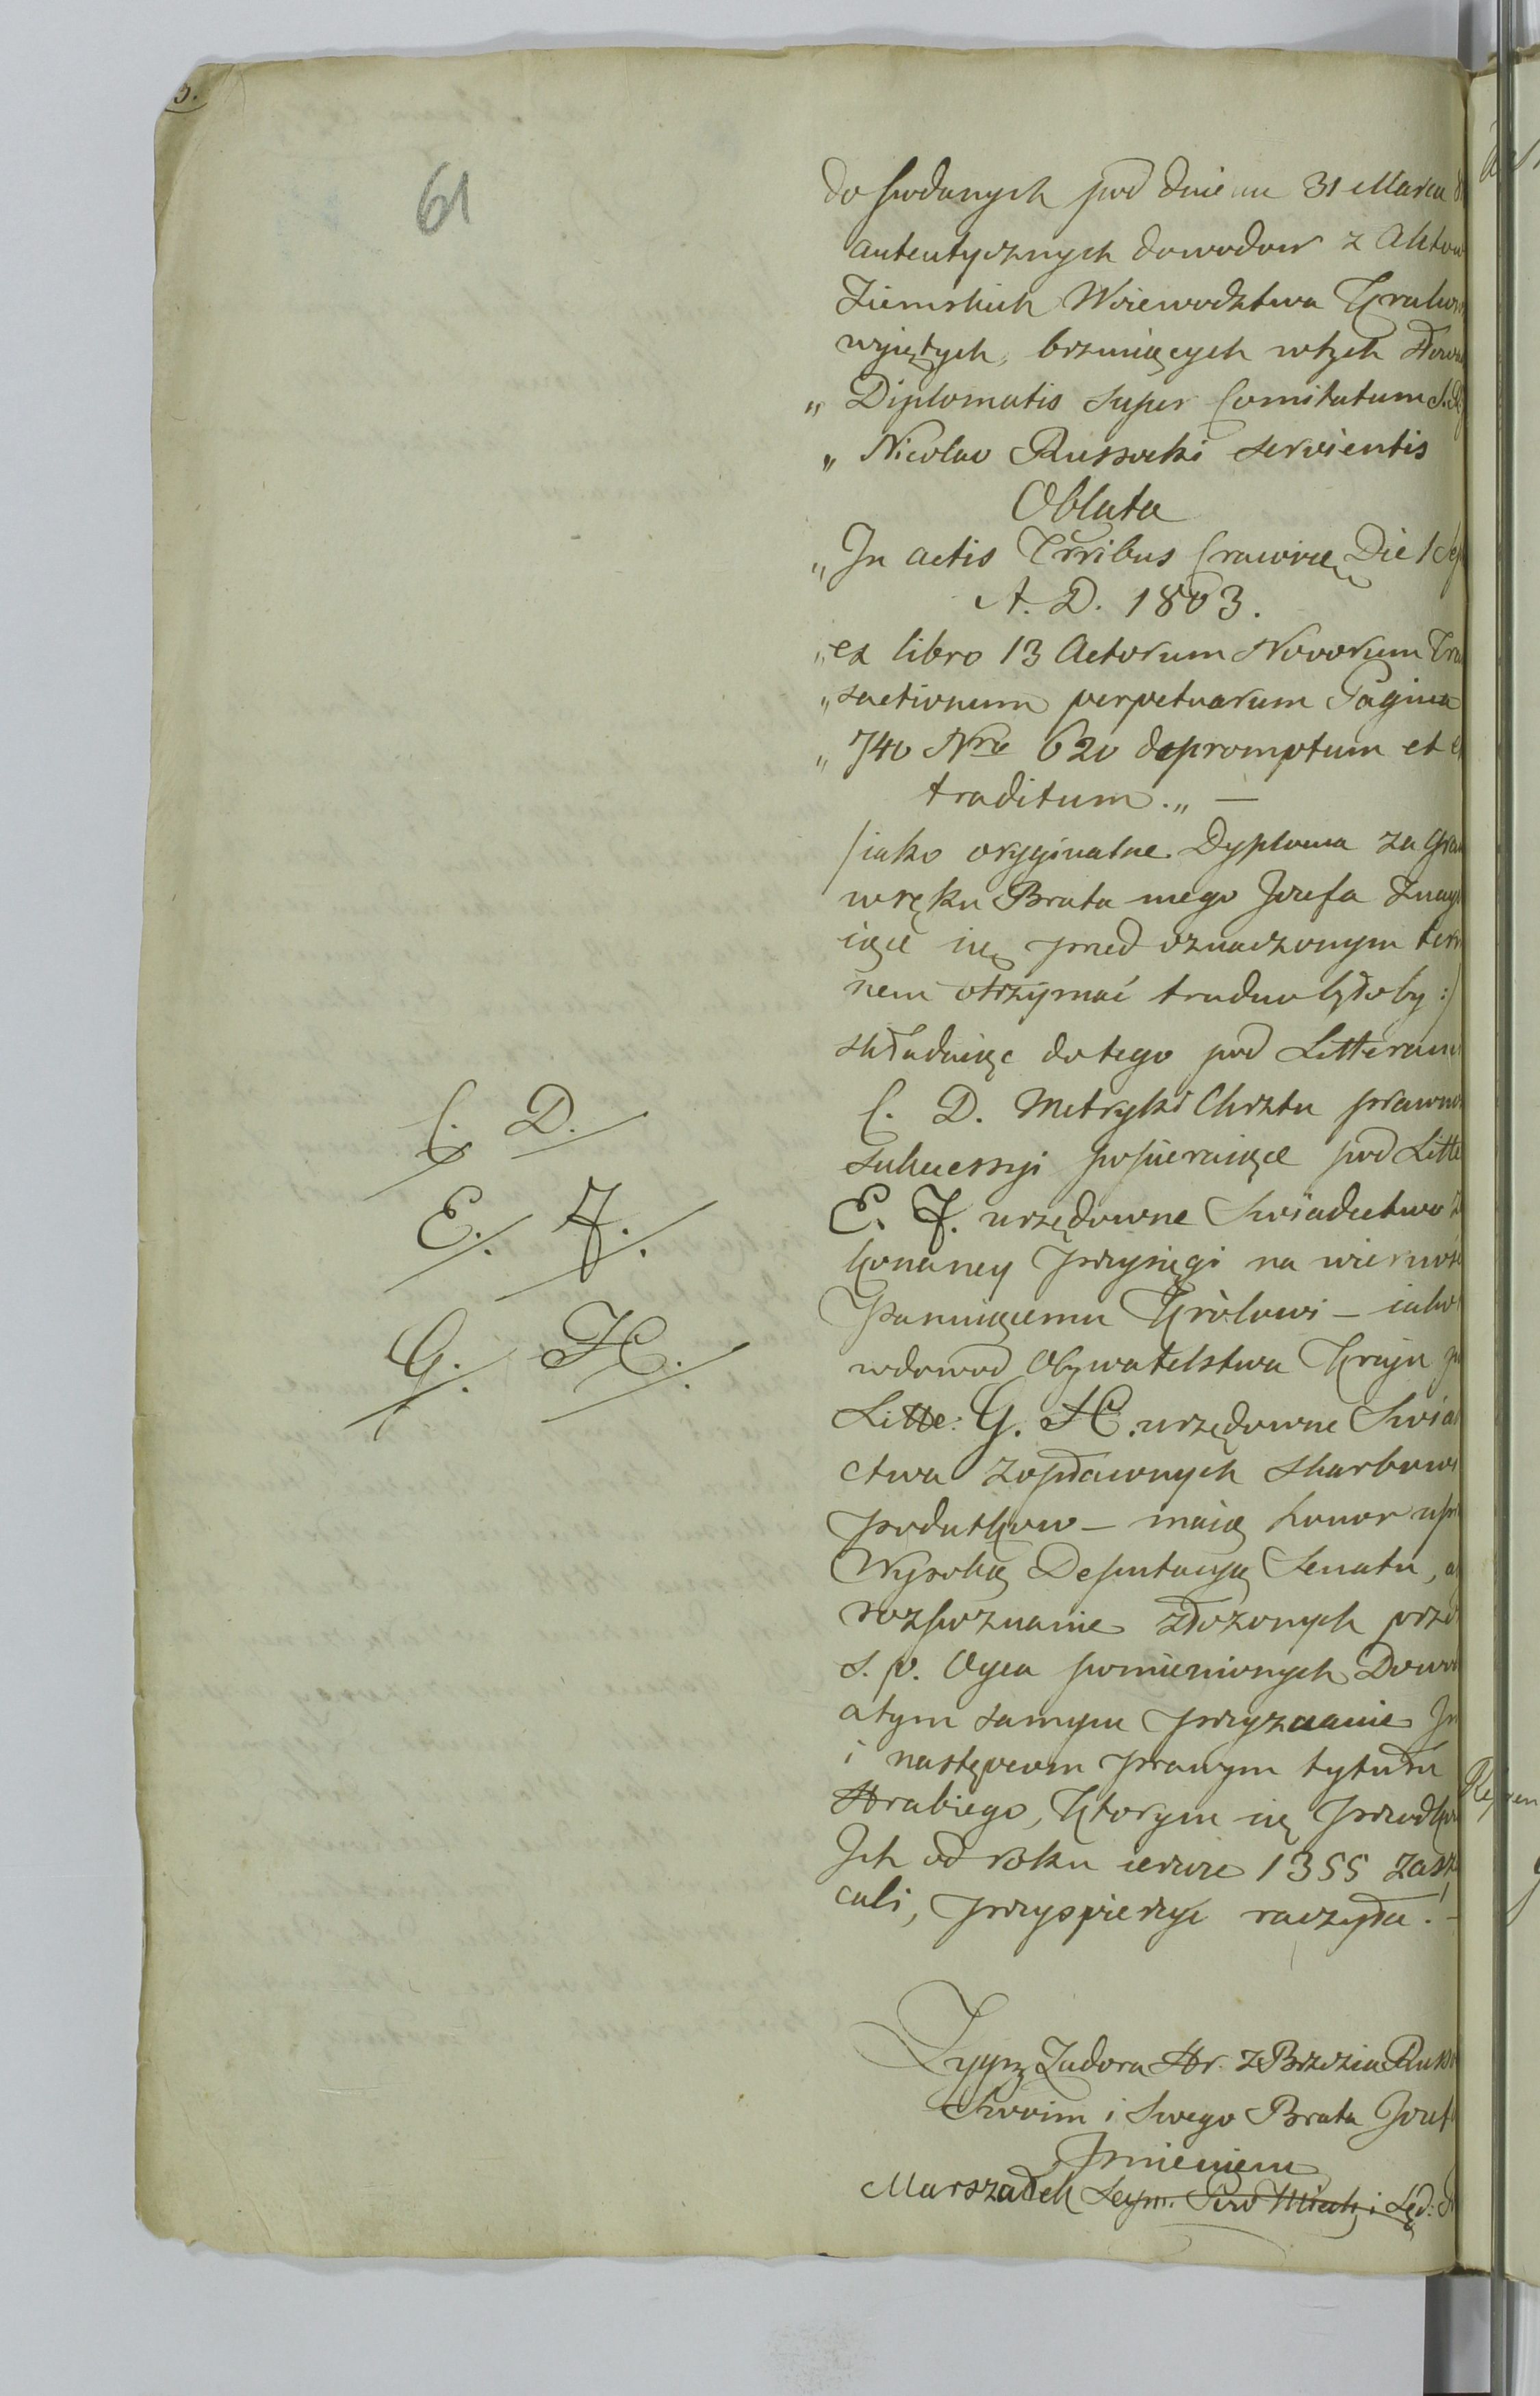 5.
61
do podanych pod dniem 31 Marca
autentycznych dowodow z Aktow
Ziemskich Woiewodztwa Krakow
wyiętych, brzmiących wtych Słow
„ Diplomatis super Comitatum
„ Nicolao Russocki servientis
Oblata
„ In actis Trribus Cracovie Die 1 Sep
A. D. 1803.
„ ex libro 13 Actorum Novorum Tra
„ sactionum perpetuarum Pagina
„ 740 Nro 620 depromptum et
traditum. „ —
/iako oryginalne Dyploma za Gra
wręku Brata mego Jozefa Znay
iące się przed oznaczonym term
nem otrzymać trudno byłoby :/
składaiąc dotego pod Litteram
C. D. Metryki Chrztu prawno
Sukcessyi popieraiące pod Litte
E. F. urzędowne Swiadectwo
konaney przysięgi na wiernosc
Panuiącemu Królowi – iako
wdowod Obywatelstwa Kraju
Litte: G. H. urzędowne Swia
ctwa zopłaconych skarbowi
podatkow – maią honor upr
Wysoką Deputacyą Senatu,
rozpoznanie złozonych prze
S. p. Oyca pomienionych Dowo
atym samym przyznanie Jm
i następcom prawym tytułu
Hrabiego, ktorym się przodko
Ich od roku ieszcze 1355 zasz
cali, przyspieszyć raczyła. –
C. D.
E. F.
G. H.
Zygm Zadora Hr. z Brzezia Russo
Swoim i Swego Brata Jozef
Imieniem
Marszałek Seym. Pow Miech i Sęd: